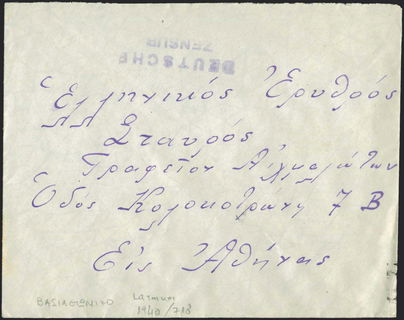 DEUTSCHE
ZENSUR
Ἑλληνικός Ἐρυθρός
Σταυρός
Γραφεῖον Αἰχμαλώτων
Ὁδός Κολοκοτρώνη 7 Β
Εἰς Ἀθήνας
1940/718